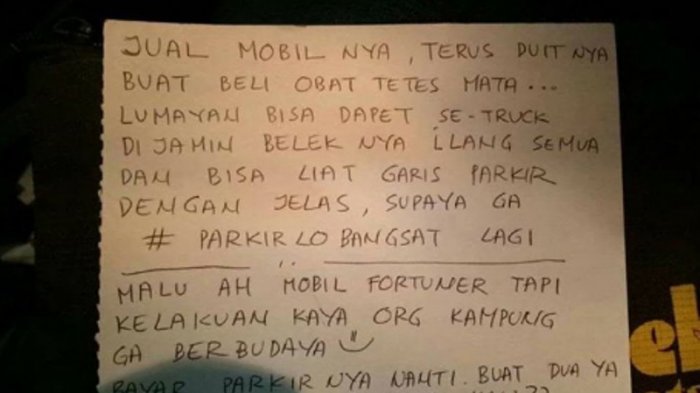 JUAL MOBIL NYA, TERUS DUIT NYA
BUAT BELI OBAT TETES MATA...
LUMAYAN BISA DAPET SE-TRUCK
DI JAMIN BELEK NYA ILANG SEMUA
DAN BISA LIAT GARIS PARKIR
DENGAN JELAS, SUPAYA GA
# PARKIR LO BANGSAT LAGI
MALU AH MOBIL FORTUNER TAPI
KELAKUAN KAYA ORG KAMPUNG
GA BERBUDAYA
BAYAR PARKIR NYA NANTI. BUAT DUA YA